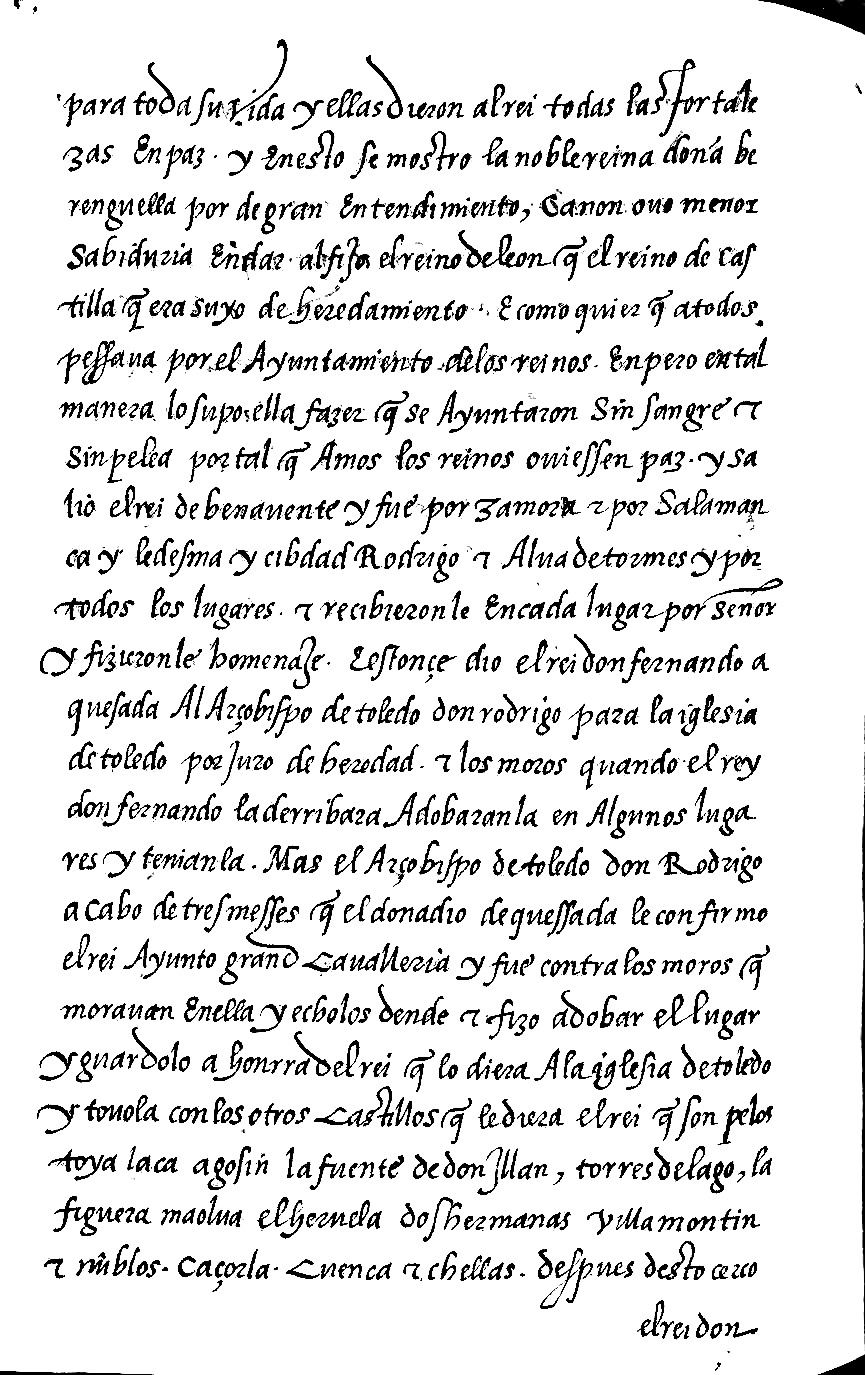 para toda su vida y ellas dieron al rei todas las fortale
zas En paz. y En esto se mostro la noble reina dona be
renguella por de gran Entendimiento, Ca non ovo menor
Sabiduria En dar al fijo el reino de leon q̃ el reino de Cas
tilla q̃ era suyo de heredamiento. E como quier q̃ a todos
pessaua por el Ayuntamiento delos reinos. Enpero en tal
manera lo supo ella fazer q̃ se Ayuntaron Sin sangre ⁊
Sin pelea por tal q̃ Amos los reinos oviessen paz. y sa
lio el rei de benauente y fue por zamora ⁊ por Salaman
ca y ledesma y cibdad Rodrigo ⁊ Alua de tormes y por
todos los lugares. ⁊ recibieronle En cada lugar por señor
y fizieronle homenaje. Estonçe dio el rei don fernando a
quesada Al Arçobispo de toledo don rodrigo para la iglesia
de toledo por Juro de heredad. ⁊ los moros quando el rey
don fernando la derribara Adobaranla en Algunos luga
res y tenianla. Mas el Arçobispo de toledo don Rodrigo
a Cabo de tres messes q̃ el donadio de quessada le confirmo
el rei Ayunto grand Cavalleria y fue contra los moros q̃
morauan En ella y echolos dende ⁊ fizo adobar el lugar
y guardolo a honrra del rei q̃ lo diera A la iglesia de toledo
y touola con los otros Castillos q̃ le diera el rei q̃ son pelos
toya laca agosin la fuente de don Jllan, torres de lago, la
figuera maolua elheruela dos hermanas villa montin
⁊ niublos. Caçorla. Cuenca ⁊ chellas. despues desto cerco
el rei don